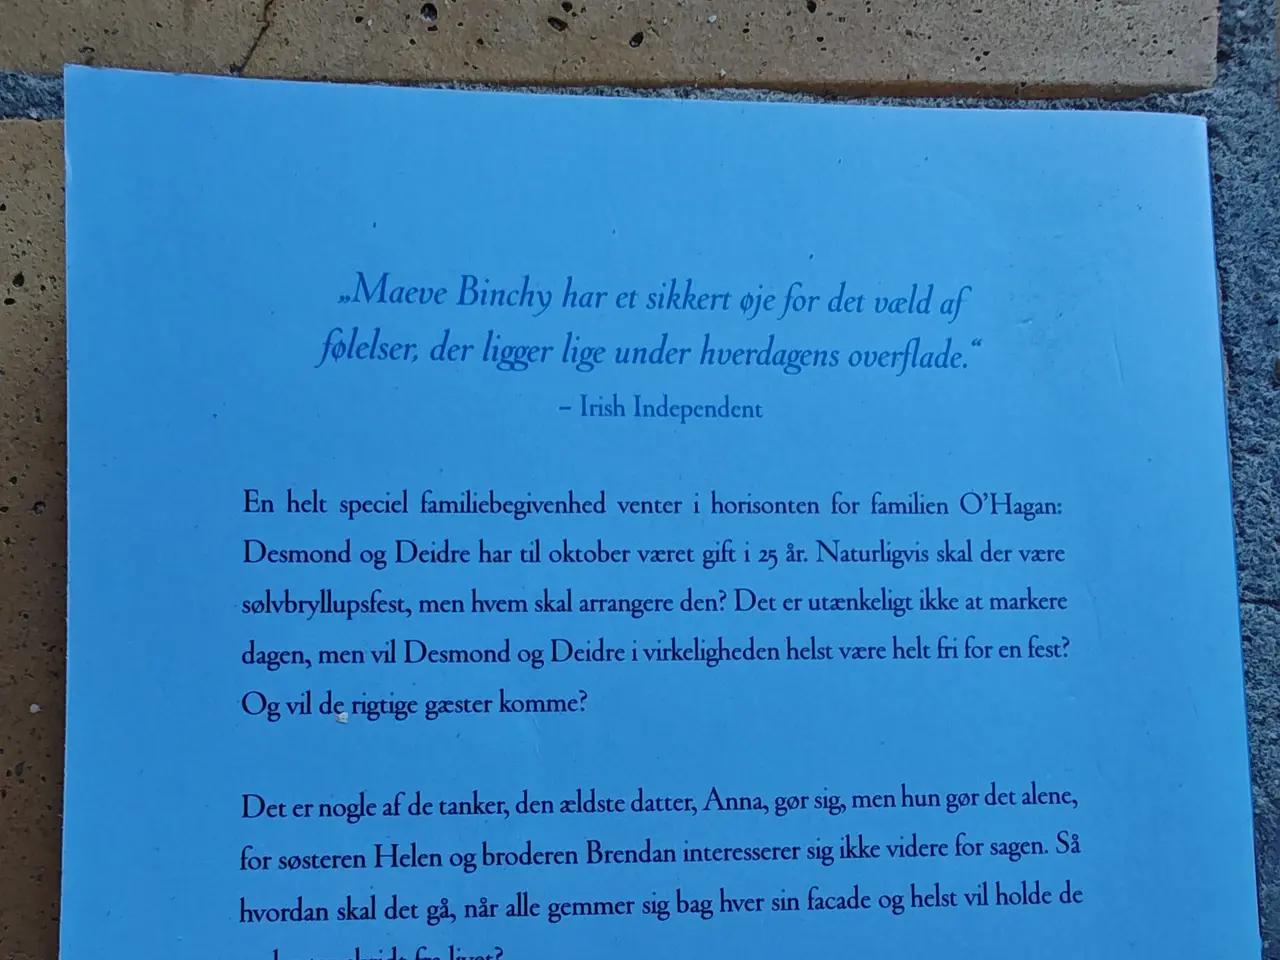 „Maeve Binchy har et sikkert øje for det væld af
følelser, der ligger lige under hverdagens overflade.“
– Irish Independent
En helt speciel familiebegivenhed venter i horisonten for familien O’Hagan:
Desmond og Deidre har til oktober været gift i 25 år. Naturligvis skal der være
sølvbryllupsfest, men hvem skal arrangere den? Det er utænkeligt ikke at markere
dagen, men vil Desmond og Deidre i virkeligheden helst være helt fri for en fest?
Og vil de rigtige gæster komme?
Det er nogle af de tanker, den ældste datter, Anna, gør sig, men hun gør det alene,
for søsteren Helen og broderen Brendan interesserer sig ikke videre for sagen. Så
hvordan skal det gå, når alle gemmer sig bag hver sin facade og helst vil holde de
livet?